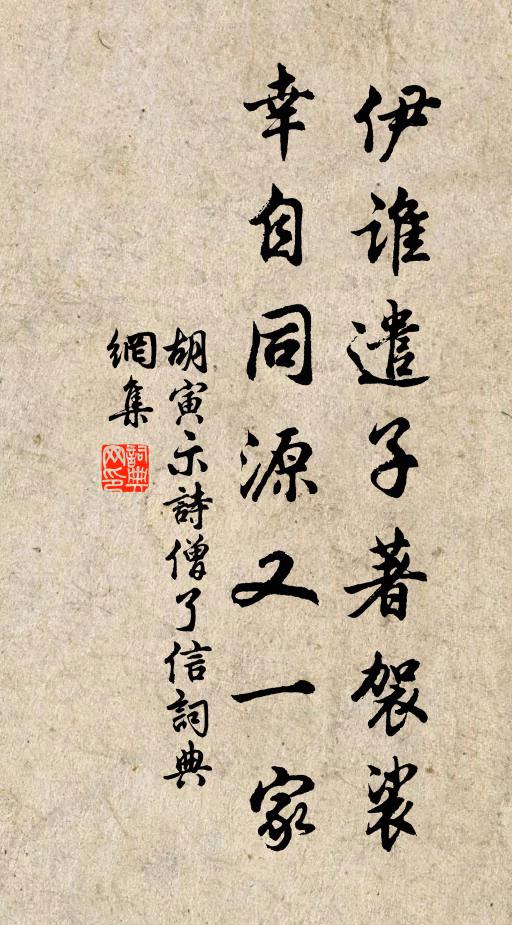 伊誰遣子著袈裟
幸自同源又一家
胡寅示詩僧了信詞典
網集
詞典網印